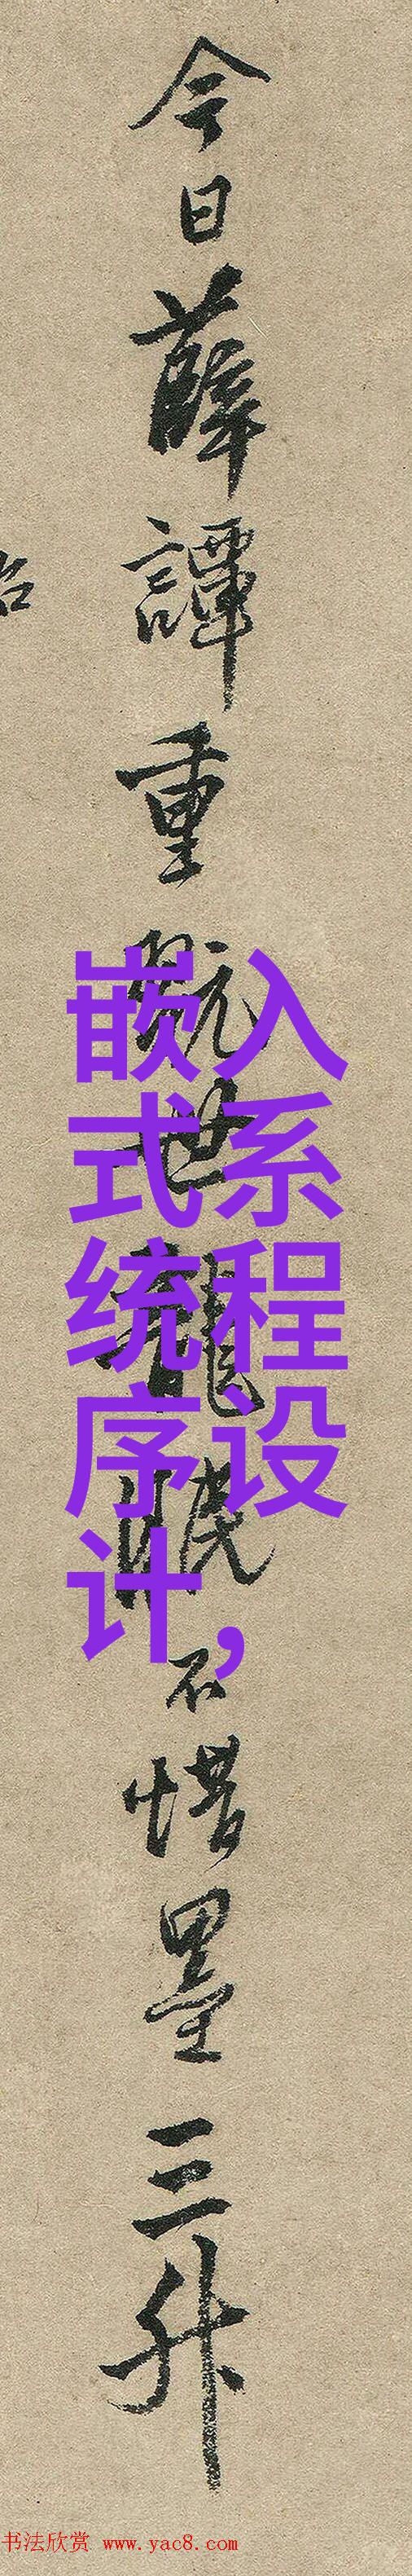 今日薛譚重翫世龍
不惜墨三升
嵌入
式系
统程
序设
计，
书法欣赏 www.yac8.com